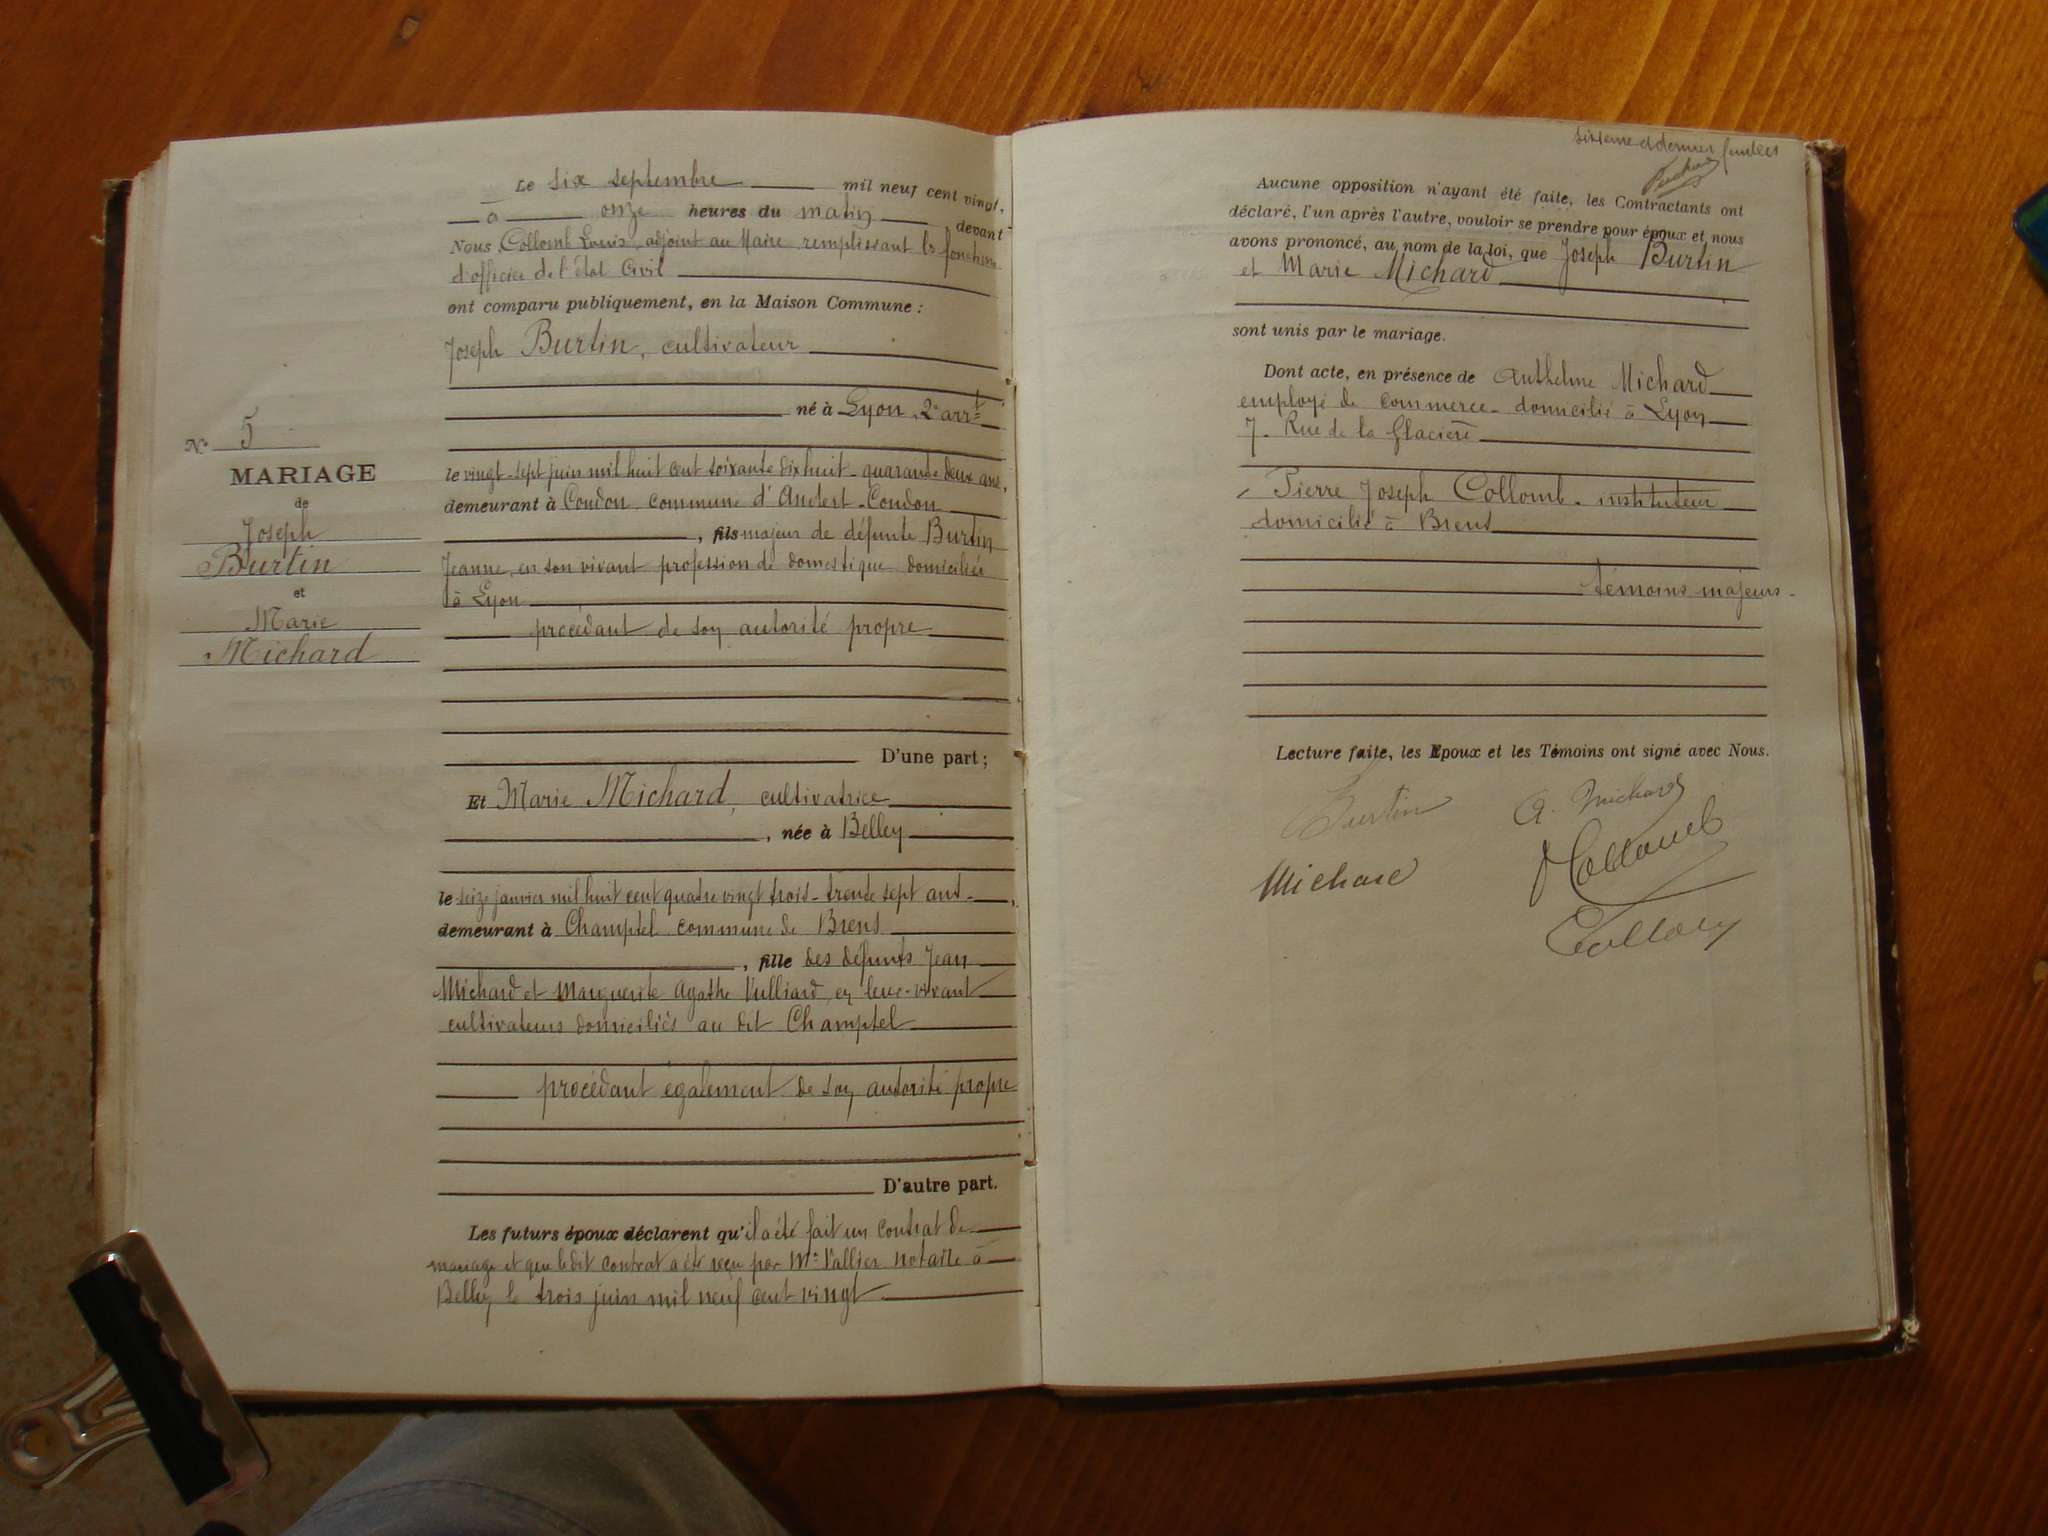 N° 5
MARIAGE
de
Joseph
Burtin
et
Marie
Michard
Le six septembre mil neuf cent vingt,
à onze heures du matin devant
Nous Collomb Louis, adjoint au Maire remplissant les fonctions
d'officier de l'état Civil
ont comparu publiquement, en la Maison Commune :
Joseph Burtin, cultivateur
né à Lyon 2e arrt
le vingt-sept juin mil huit cent soixante dix huit - quarante deux ans,
demeurant à Coudon commune d'Andert-Coudon
, fils majeur de défunte Burtin
Jeanne en son vivant profession de domestique domiciliée
à Lyon
procédant de son autorité propre
D'une part ;
Et Marie Michard, cultivatrice
, née à Belley
le seize janvier mil huit cent quatre vingt trois - trente sept ans -
demeurant à Champtel commune de Brens
, fille des défunts Jean
Michard et Marguerite Agathe Vulliard en leur vivant
cultivateurs domiciliés au dit Champtel
procédant également de son autorité propre
D'autre part.
Les futurs époux déclarent qu'il a été fait un contrat de
mariage et que le dit contrat a été reçu par Me Vallier notaire à
Belley le trois juin mil neuf cent vingt
sixième et dernier
Aucune opposition n'ayant été faite, les Contractants ont
déclaré, l'un après l'autre, vouloir se prendre pour époux et nous
avons prononcé, au nom de la loi, que Joseph Burtin
et Marie Michard
sont unis par le mariage.
Dont acte, en présence de Anthelme Michard
employé de commerce - domicilié à Lyon
7. Rue de la Glacière
Pierre Joseph Collomb - instituteur
domicilié à Brens
témoins majeurs -
Lecture faite, les Epoux et les Témoins ont signé avec Nous.
Burtin
A. Michard
Collomb
Michard